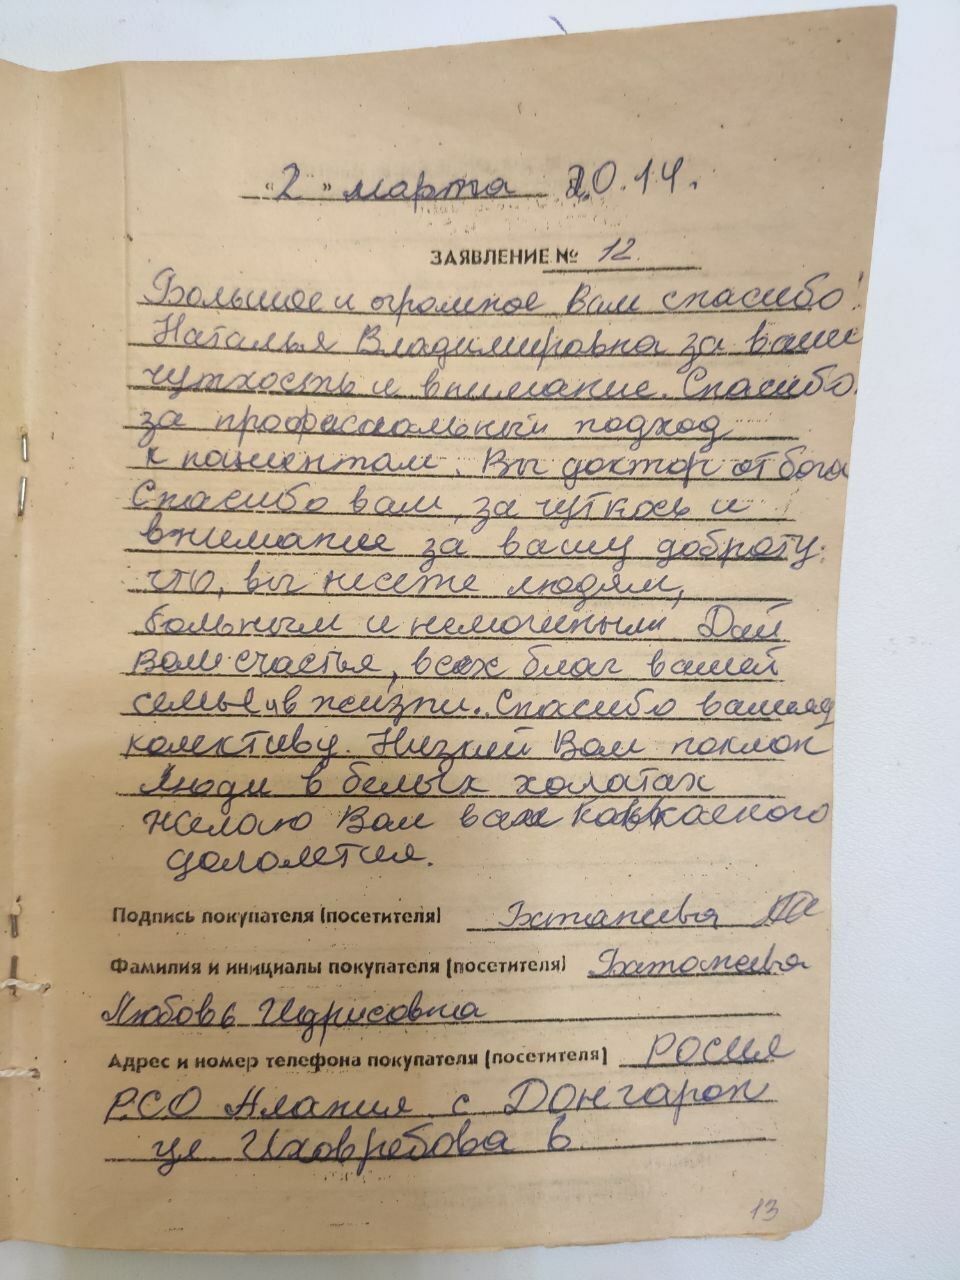 «2» марта 20.14.
ЗАЯВЛЕНИЕ № 12.
Большое и огромное Вам спасибо!
Наталья Владимировна за ваше
чуткость и внимание. Спасибо.
за професиальный подход
к пациентам. Вы доктор от бога
Спасибо вам, за чуткось и
внимание за вашу доброту.
что, вы несете людям,
больным и немощным Дай
Вам счастья, всех благ вашей
семье и в жизни. Спасибо вашему
колективу. Низкий Вам поклон
Люди в белых халатах
желаю Вам всем Кавкаского
дололетия.
Подпись покупателя (посетителя)
Фамилия и инициалы покупателя (посетителя)
Любовь Идрисовна
Адрес и номер телефона покупателя (посетителя) Росия
РСО Алания с Донгарон
ул
13